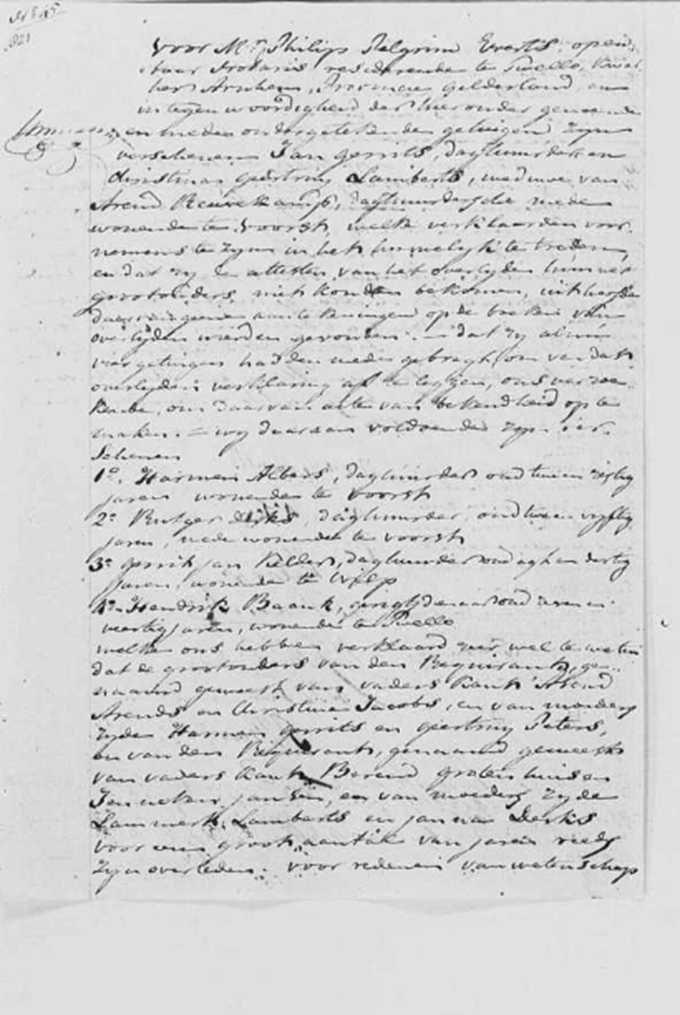 1821
Voor Mr. Philip Pelgrim Evertis open,
baar Notaris resideerende te Twello,
Arnhem, Provincie Gelderland, en
in tegenwoordigheid der hieronder genoemde
en mede ondergetekende getuigen zyn
verschenen Jan Gerrits, daghuurder en
Christina Geertruy Lamberts, weduwe van
Arend Reuvekamp, daghuurdersche mede
wonende te Voorst, welke verklaarden voor,
nemens te zyn in het huwelyk te treden,
en dat zy de attesten van het overlyden hunner
grootouders, niet konden bekomen, uit hoofde
daarvan geene aantekeningen op de boeken van
overlyden wierden gevonden:— dat zy
vier getuigen hadden mede gebragt om van dat
overlyden verklaring af te leggen, ons verzoe
kende, om daarvan acte van bekendheid op te
maken.— wy daaraan voldoende zyn ver,
schenen
1o. Harmen Alberts, daghuurder oud
jaren wonende te Voorst
2o Rutger Dirks, daghuurder, oud twee en vyftig
jaren, mede wonende te Voorst
3o Gerrit Jan Peller, daghuurder oud agt en dertig
jaren, wonende te Wilp
4o Hendrik Baank, oud zeven en
veertig jaren, wonende te Twello
welke ons hebben verklaard zeer wel te weten
dat de grootouders van den Requirant, ge,
naamd geweest van vaders kant Arend
Arends en Christina Jacobs, en van moeders
zyde Harmen Gerrits en Geertruy Peters,
en van den Requirante, genaamd geweest
van vaders kant Berend Grotenhuis en
Janneken Jansen, en van moeders zyde
Lammert Lamberts en Janna Derks
voor een groot aantal van jaren reeds
zyn overleden. voor redenen van wetenschap